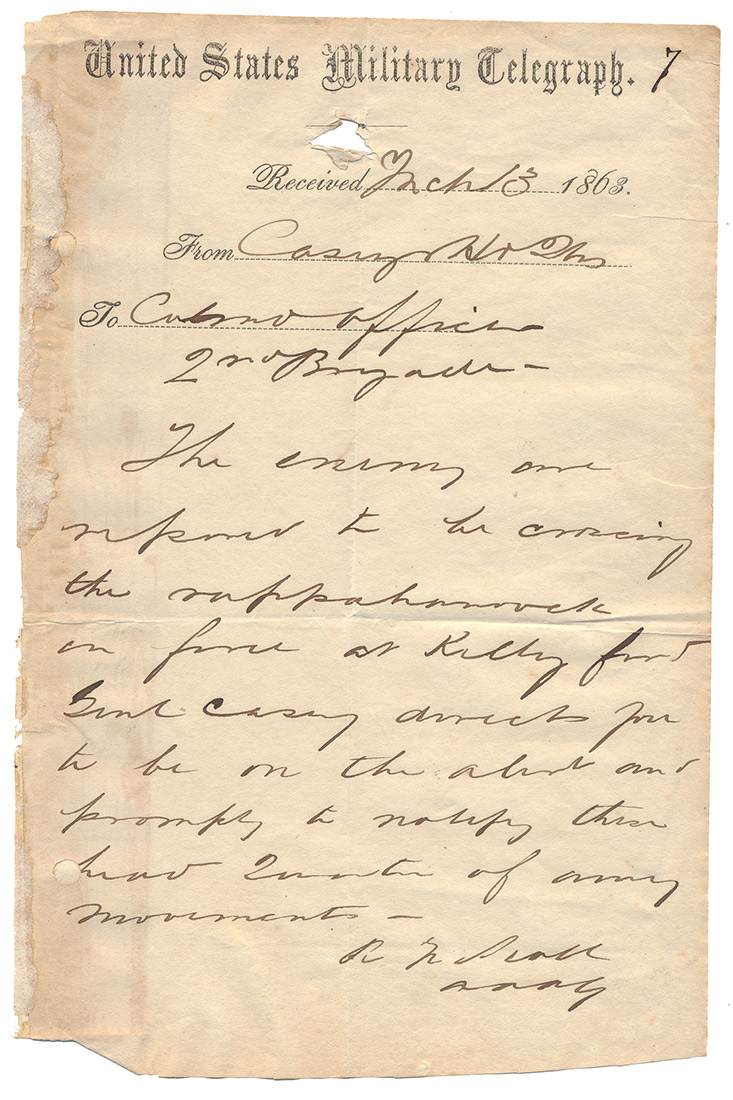 United States Military Telegraph. 7
Received Mch 13 1863.
From Caseys Hd Qrs
To Comd officer
2nd Brigade –
The enemy are
repored to be crossing
the rappahanock
in force at Kelly ford
Genl Casey directs you
to be on the alert and
promptly to notify these
head Quarter of enemy
movements –
R N Scott
AAAG